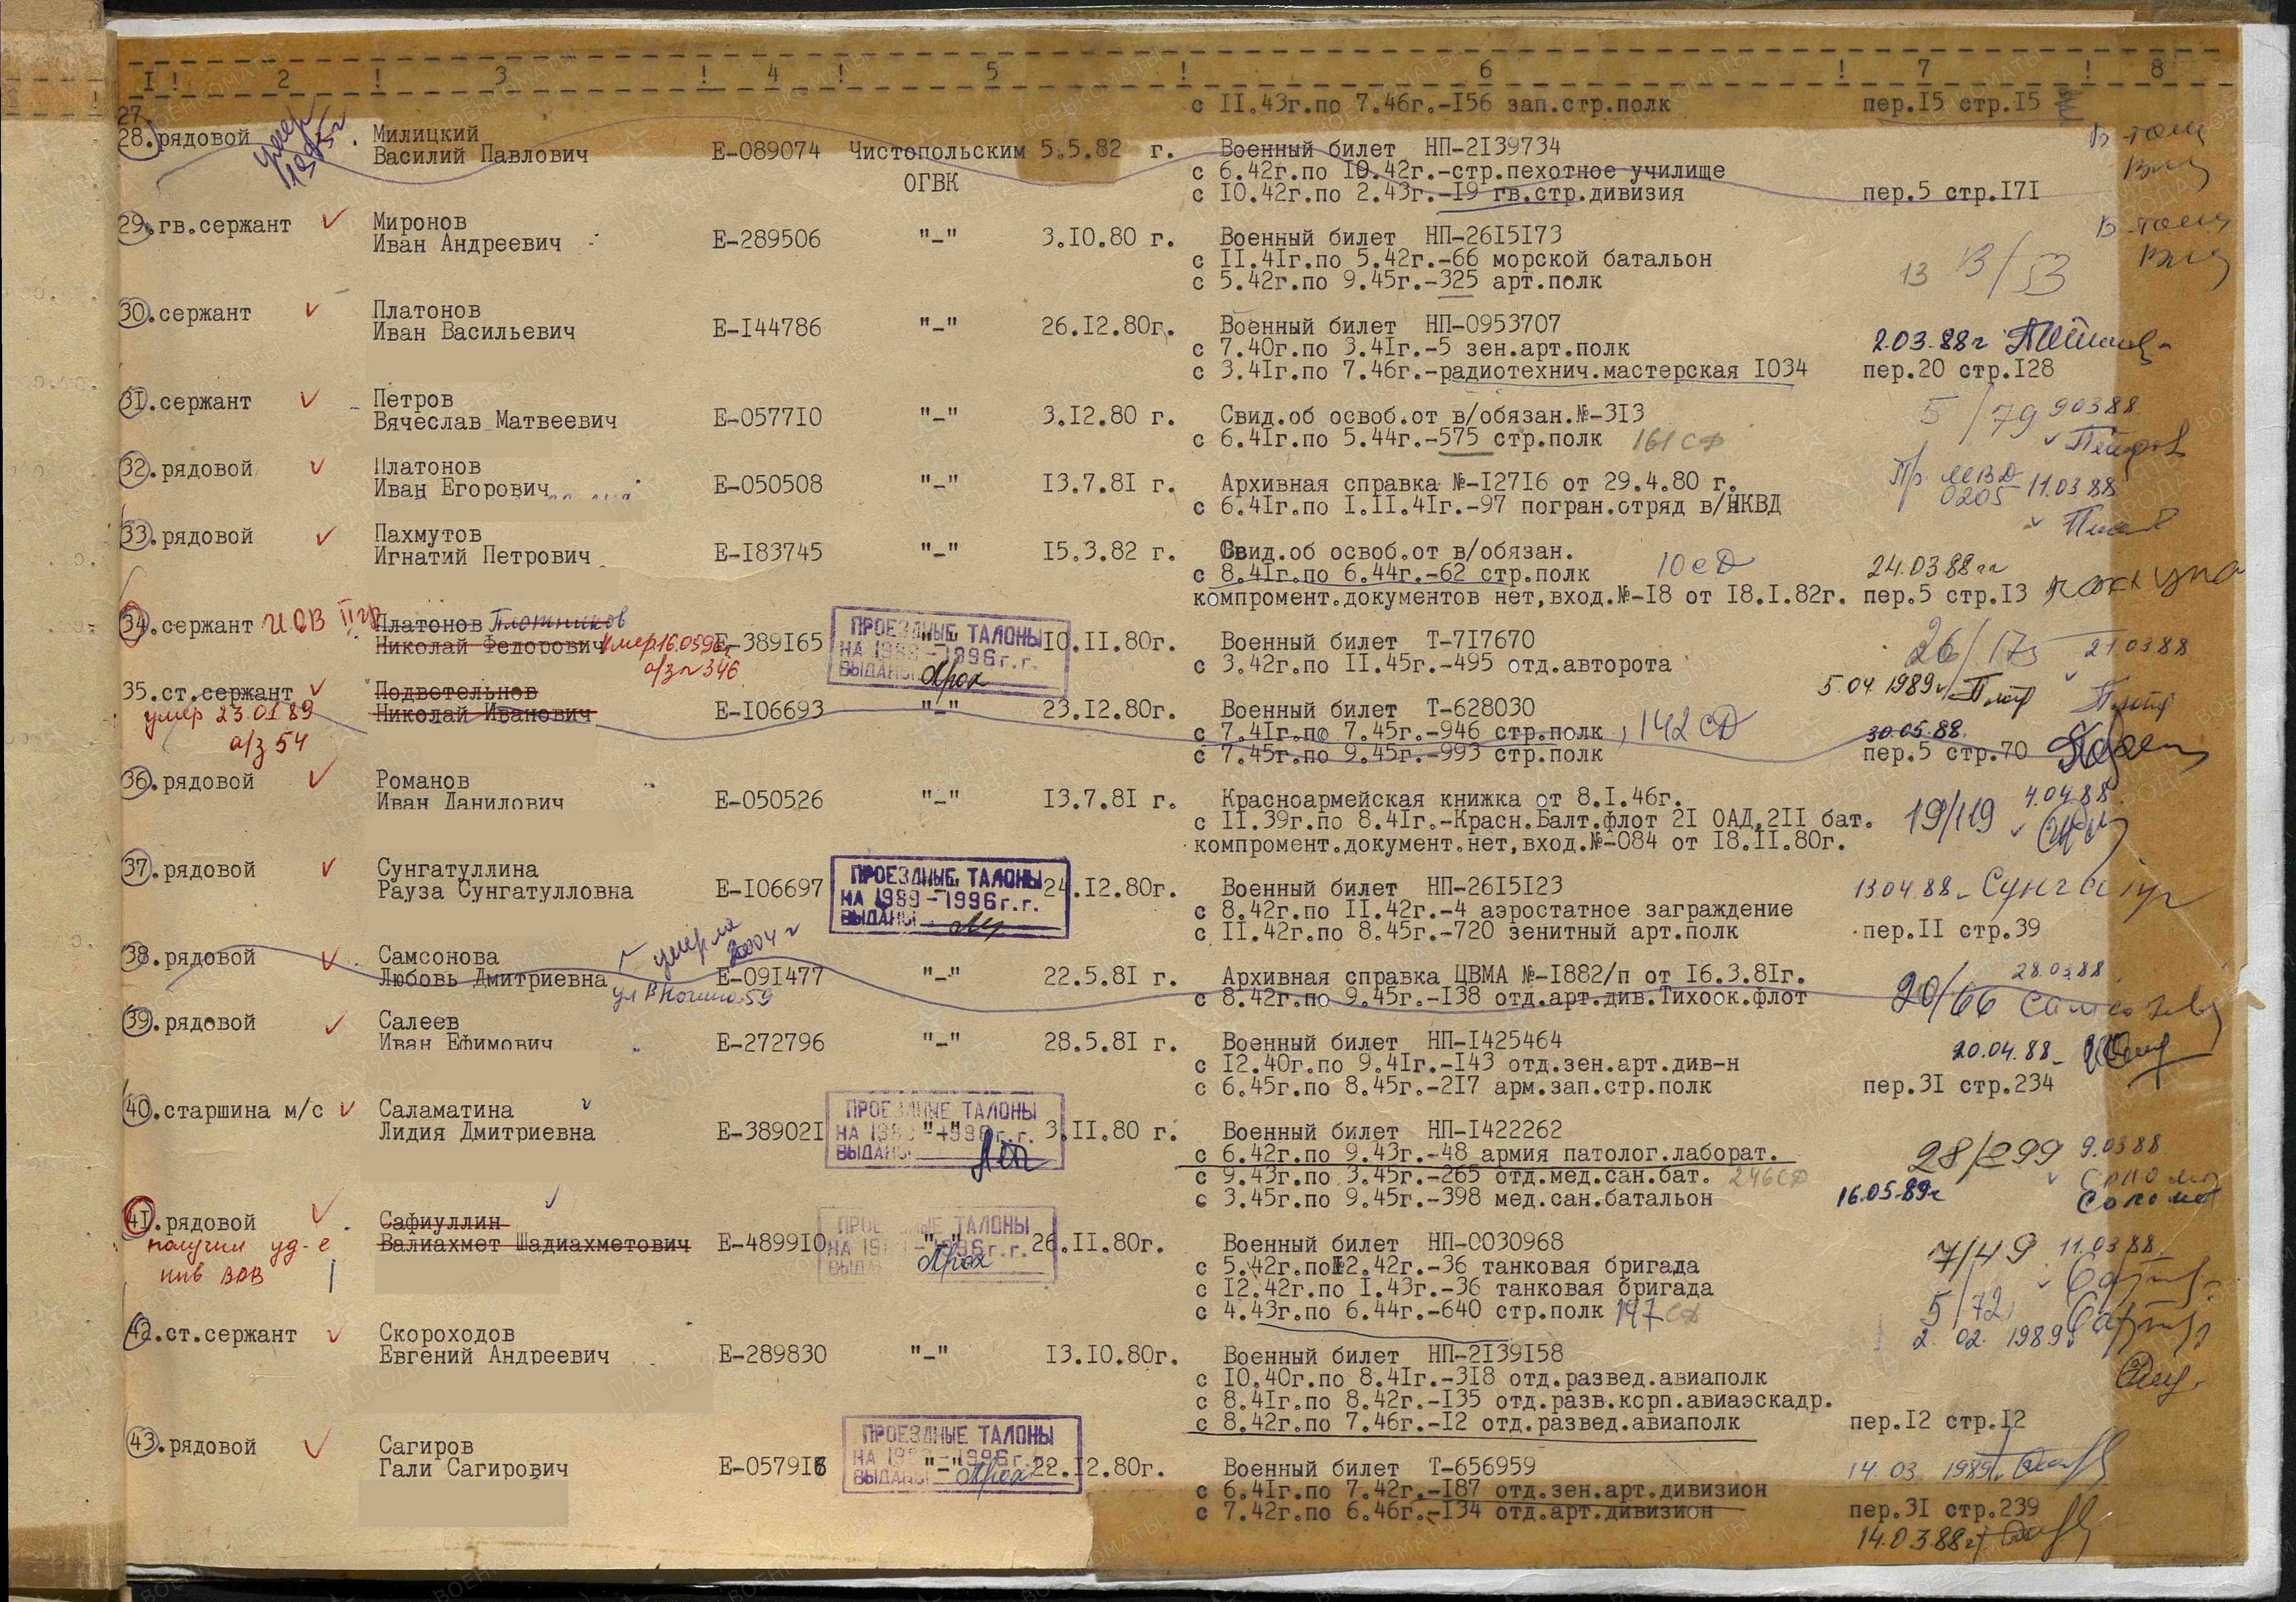 I ! 2 ! 3 ! 4 ! 5 ! 6 ! 7 ! 8
27.
с II.43г.по 7.46г.-I56 зап.стр.полк пер.I5 стр.I5
28.рядовой умер Милицкий
Василий Павлович Е-089074 Чистопольским 5.5.82 г. Военный билет НП-2I39734
ОГВК с 6.42г.по I0.42г.-стр.пехотное училище
с I0.42г.по 2.43г.-I9 гв.стр.дивизия пер.5 стр.I7I
29.гв.сержант Миронов
Иван Андреевич Е-289506 "-" 3.I0.80 г. Военный билет НП-26I5I73
с II.4Iг.по 5.42г.-66 морской батальон
с 5.42г.по 9.45г.-325 арт.полк 13 13/53
30.сержант Платонов
Иван Васильевич Е-I44786 "-" 26.I2.80г. Военный билет НП-0953707
с 7.40г.по 3.4Iг.-5 зен.арт.полк 2.03.88г
с 3.4Iг.по 7.46г.-радиотехнич.мастерская I034 пер.20 стр.I28
31.сержант Петров
Вячеслав Матвеевич Е-0577I0 "-" 3.I2.80 г. Свид.об освоб.от в/обязан.№-3I3 5/79 90388
с 6.4Iг.по 5.44г.-575 стр.полк 161 СД
32.рядовой Платонов
Иван Егорович Е-050508 "-" I3.7.8I г. Архивная справка №-I27I6 от 29.4.80 г. Пр. МВД 0205 11.03 88
с 6.4Iг.по I.II.4Iг.-97 погран.отряд в/НКВД
33.рядовой Пахмутов
Игнатий Петрович Е-I83745 "-" I5.3.82 г. Свид.об освоб.от в/обязан.
с 8.4Iг.по 6.44г.-62 стр.полк 10 СД 24.03 88
компромент.документов нет,вход.№-I8 от I8.I.82г. пер.5 стр.I3
34.сержант ИОВ II гр Платонов Плотников
Николай Федорович умер 16.05 Е-389I65 "-" I0.II.80г. Военный билет Т-7I7670
а/з № 346 с 3.42г.по II.45г.-495 отд.авторота 26/173 21.03 88
ПРОЕЗДНЫЕ ТАЛОНЫ
НА 1989-1996г.г.
ВЫДАНЫ
5.04 1989г
35.ст.сержант Подветельнов
умер 23.01 89 Николай Иванович Е-I06693 "-" 23.I2.80г. Военный билет Т-628030
а/з 54 с 7.4Iг.по 7.45г.-946 стр.полк , 142 СД 30.05.88.
с 7.45г.по 9.45г.-993 стр.полк пер.5 стр.70
36.рядовой Романов
Иван Данилович Е-050526 "-" I3.7.8I г. Красноармейская книжка от 8.I.46г. 4.04 88
с II.39г.по 8.4Iг.-Красн.Балт.флот 2I ОАД,2II бат. 19/119
компромент.документ.нет,вход.№-084 от I8.II.80г.
37.рядовой Сунгатуллина
Рауза Сунгатулловна Е-I06697 24.I2.80г. Военный билет НП-26I5I23 13.04 88
ПРОЕЗДНЫЕ ТАЛОНЫ
НА 1989-1996г.г.
ВЫДАНЫ
с 8.42г.по II.42г.-4 аэростатное заграждение
с II.42г.по 8.45г.-720 зенитный арт.полк пер.II стр.39
умерла 2004 г
38.рядовой Самсонова
Любовь Дмитриевна Е-09I477 "-" 22.5.8I г. Архивная справка ЦВМА №-I882/п от I6.3.8Iг. 28.03.88
с 8.42г.по 9.45г.-I38 отд.арт.див.Тихоок.флот 20/66
39.рядовой Салеев
Иван Ефимович Е-272796 "-" 28.5.8I г. Военный билет НП-I425464 20.04.88
с I2.40г.по 9.4Iг.-I43 отд.зен.арт.див-н
с 6.45г.по 8.45г.-2I7 арм.зап.стр.полк пер.3I стр.234
40.старшина м/с Саламатина
Лидия Дмитриевна Е-38902I "-" 3.II.80 г. Военный билет НП-I422262
ПРОЕЗДНЫЕ ТАЛОНЫ
НА 1989-1996г.г.
ВЫДАНЫ
с 6.42г.по 9.43г.-48 армия патолог.лаборат. 28/299 9.03 88
с 9.43г.по 3.45г.-265 отд.мед.сан.бат. 246 СД
с 3.45г.по 9.45г.-398 мед.сан.батальон 16.05.89г
41.рядовой Сафиуллин
получил уд-е Валиахмет Шадиахметович Е-4899I0 "-" 26.II.80г. Военный билет НП-0030968 7/49 11.03 88
инв ВОВ с 5.42г.поI2.42г.-36 танковая бригада
ПРОЕЗДНЫЕ ТАЛОНЫ
НА 1989-1996г.г.
ВЫДАНЫ
с I2.42г.по I.43г.-36 танковая бригада
с 4.43г.по 6.44г.-640 стр.полк 197 СД 5/72
2. 02. 1989г
42.ст.сержант Скороходов
Евгений Андреевич Е-289830 "-" I3.I0.80г. Военный билет НП-2I39I58
с I0.40г.по 8.4Iг.-3I8 отд.развед.авиаполк
с 8.4Iг.по 8.42г.-I35 отд.разв.корп.авиаэскадр.
с 8.42г.по 7.46г.-I2 отд.развед.авиаполк пер.I2 стр.I2
43.рядовой Сагиров
Гали Сагирович Е-0579I8 "-" 22.I2.80г. Военный билет Т-656959 14.03 1989г.
ПРОЕЗДНЫЕ ТАЛОНЫ
НА 1989-1996г.г.
ВЫДАНЫ
с 6.4Iг.по 7.42г.-I87 отд.зен.арт.дивизион
с 7.42г.по 6.46г.-I34 отд.арт.дивизион пер.3I стр.239
14.03.88г